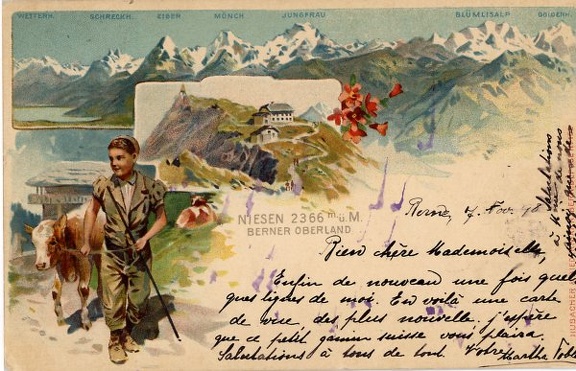 WETTERH. SCHRECKH. EIGER MÖNCH JUNGFRAU BLÜMLISALP DOLDENH.
NIESEN 2366 m ü. M.
BERNER OBERLAND
Berne, 7. Nov.
Bien chère Mademoiselle,
Enfin de nouveau une fois quel
ques lignes de moi. En voilà une carte
de vue, des plus nouvelle. j'espère
que ce petit gamin suisse vous plaira.
Salutations à tous de tout. Votre
Martha Tobl
Salutations
à
de nous